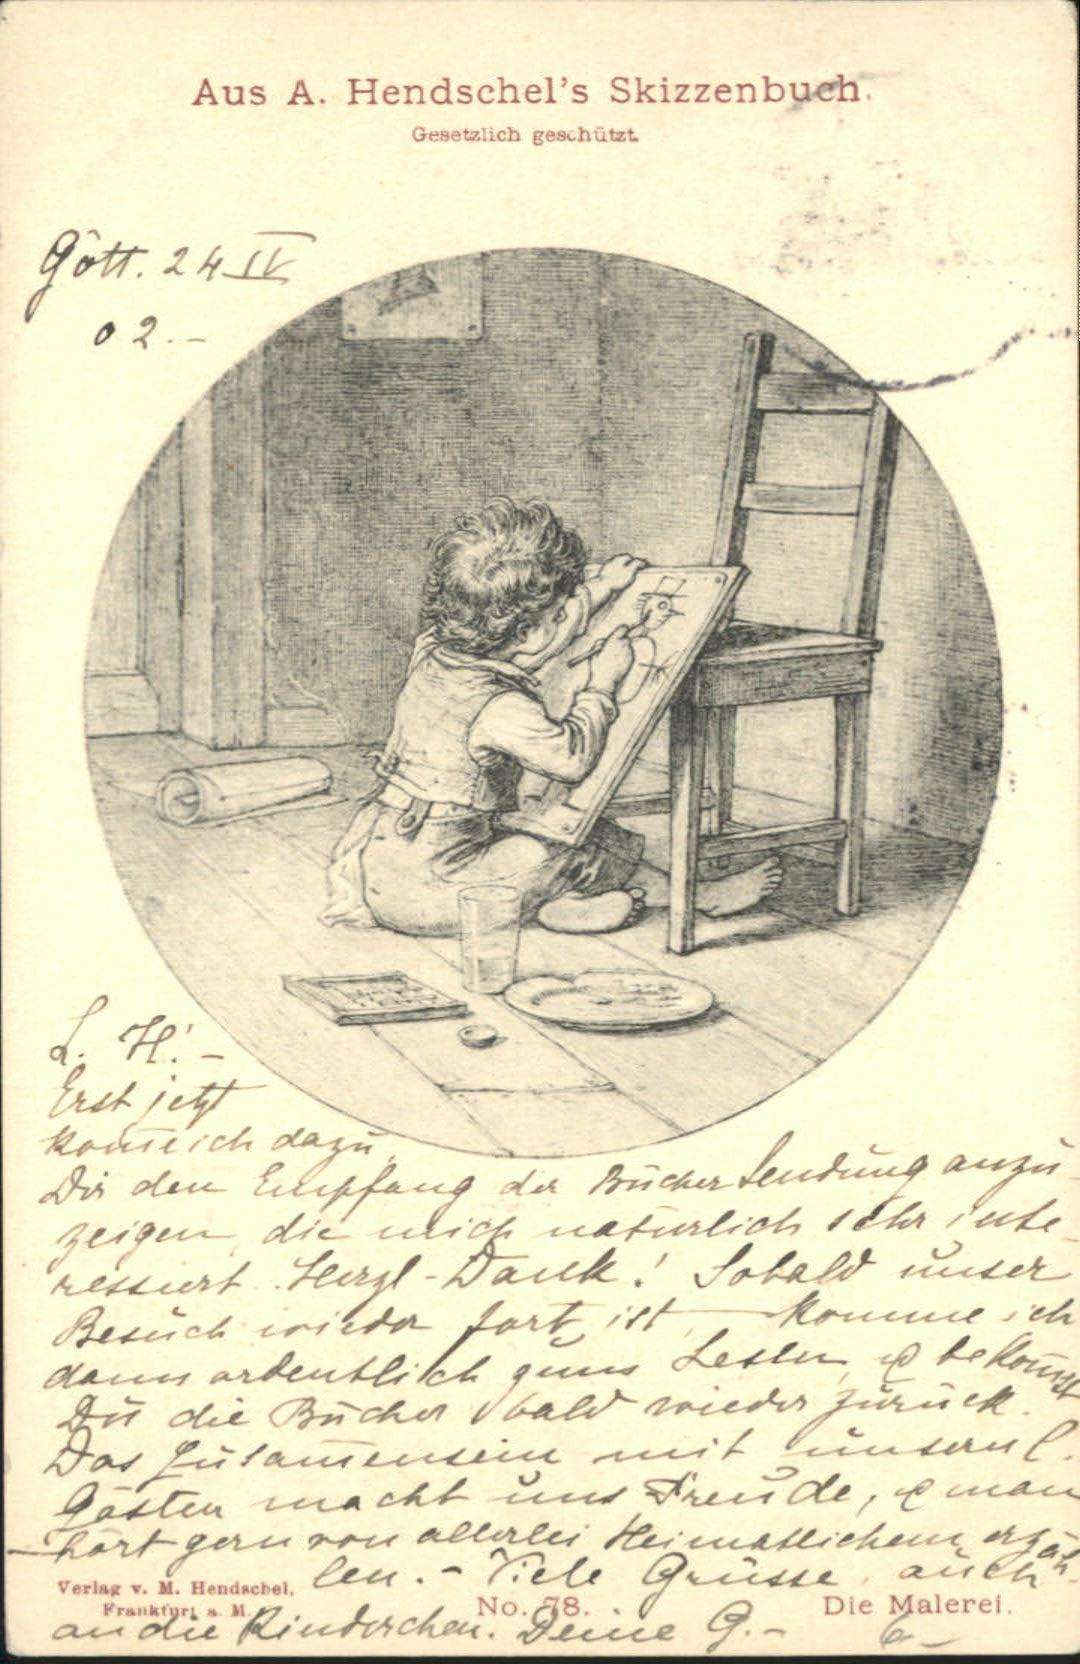 Aus A. Hendschel's Skizzenbuch.
Gesetzlich geschützt.
Gött. 24 IV
02.-
L. H! -
Erst jetzt
kom̅e ich dazu,
Dir den Empfang der Bücher Sendung anzu-
zeigen, die mich natürlich sehr inte-
ressiert. Herzl-Dank! Sobald unser
Besuch wieder fort ist, komme ich
dann ordentlich zum Lesen, & bekom̅st
Du die Bücher bald wieder zurück.
Das Zusam̅ensein mit unsern l.
Gästen macht uns Freude, & man
hört gern von allerlei Heimatlichem erzäh-
len. - Viele Grüsse, auch
Verlag v. M. Hendschel,
Frankfurt a. M.
No. 78.
Die Malerei.
an die Kinderchen. Deine G. -